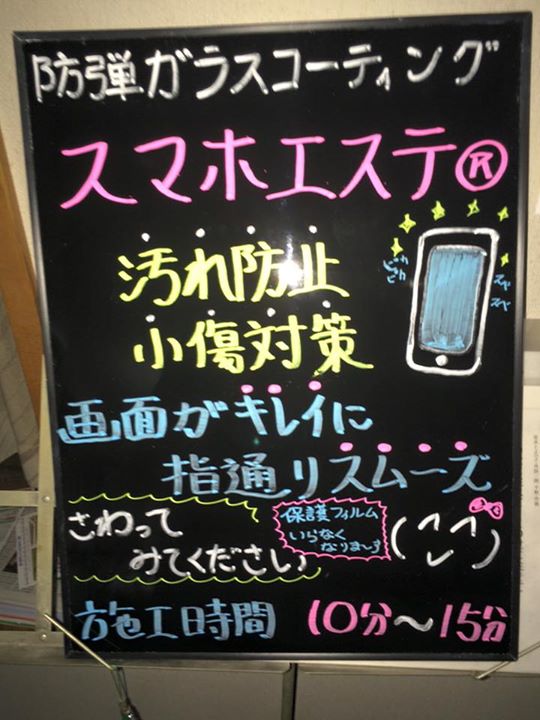 防弾ガラスコーティング
スマホエステ®
汚れ防止
小傷対策
ピカ
ピカ
スベ
スベ
画面がキレイに
指通りスムーズ
さわって
みてください
保護フィルム
いらなく
なりまーす
施工時間 10分～15分